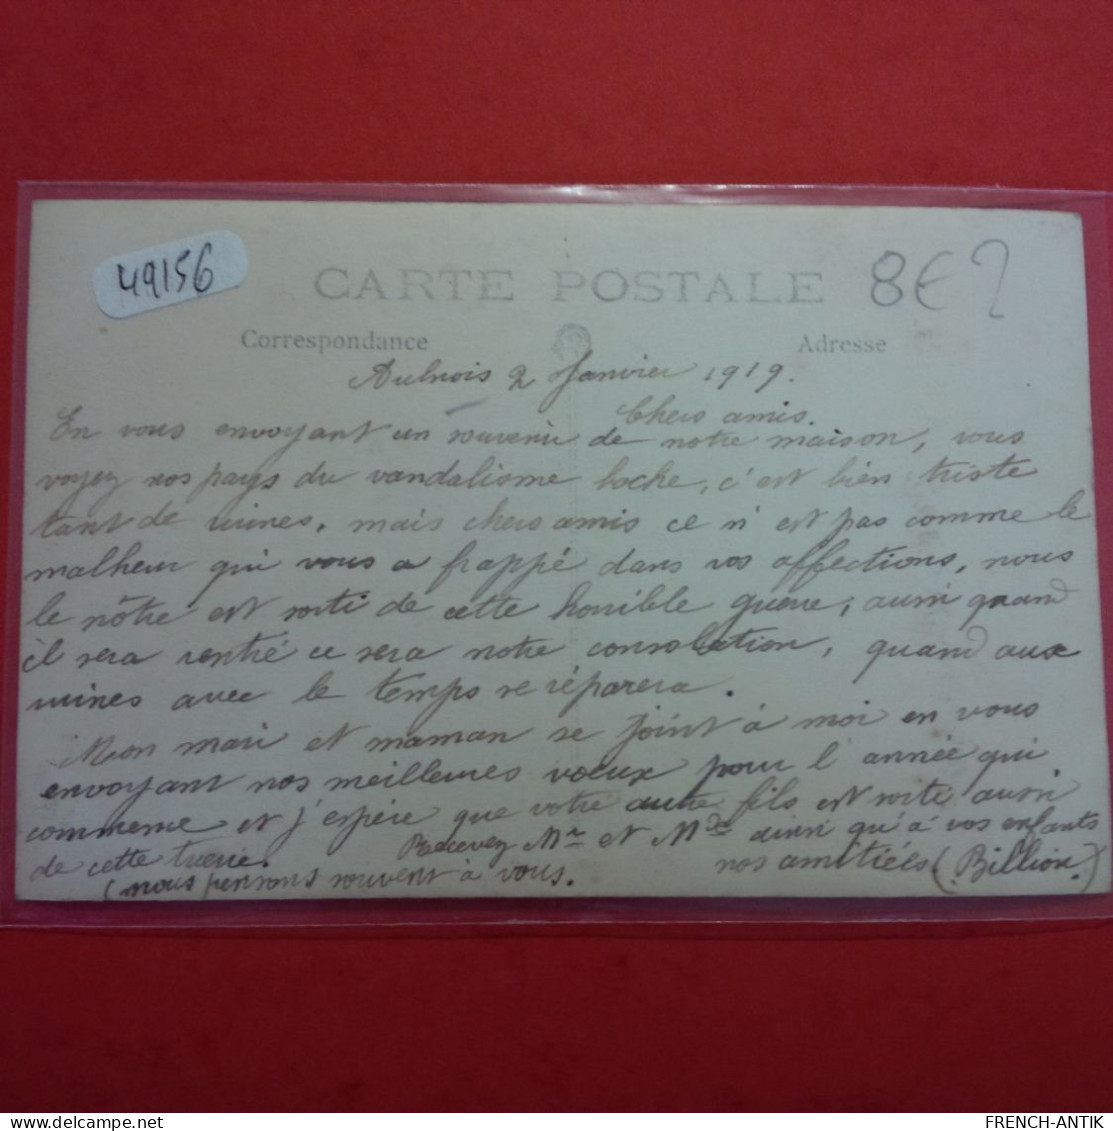 49156
CARTE POSTALE
8€
Correspondance
Adresse
Aulnois 2 Janvier 1919.
Chers amis.
En vous envoyant un souvenir de notre maison, vous
voyez nos pays du vandalisme boche, c'est bien triste
tant de ruines. mais chers amis ce n'est pas comme le
malheur qui vous a frappé dans vos affections, nous
le nôtre est sorti de cette horrible guerre, aussi quand
il sera rentré ce sera notre consolation, quand aux
ruines avec le temps se réparera.
Mon mari et maman se joint à moi en vous
envoyant nos meilleures voeux pour l'année qui
commence et j'espère que votre autre fils est sorti aussi
de cette tuerie.
Recevez Mr et Mde ainsi qu'à vos enfants
nos amitiées (Billion.)
(nous pensons souvent à vous.
delcampe.net
FRENCH-ANTIK